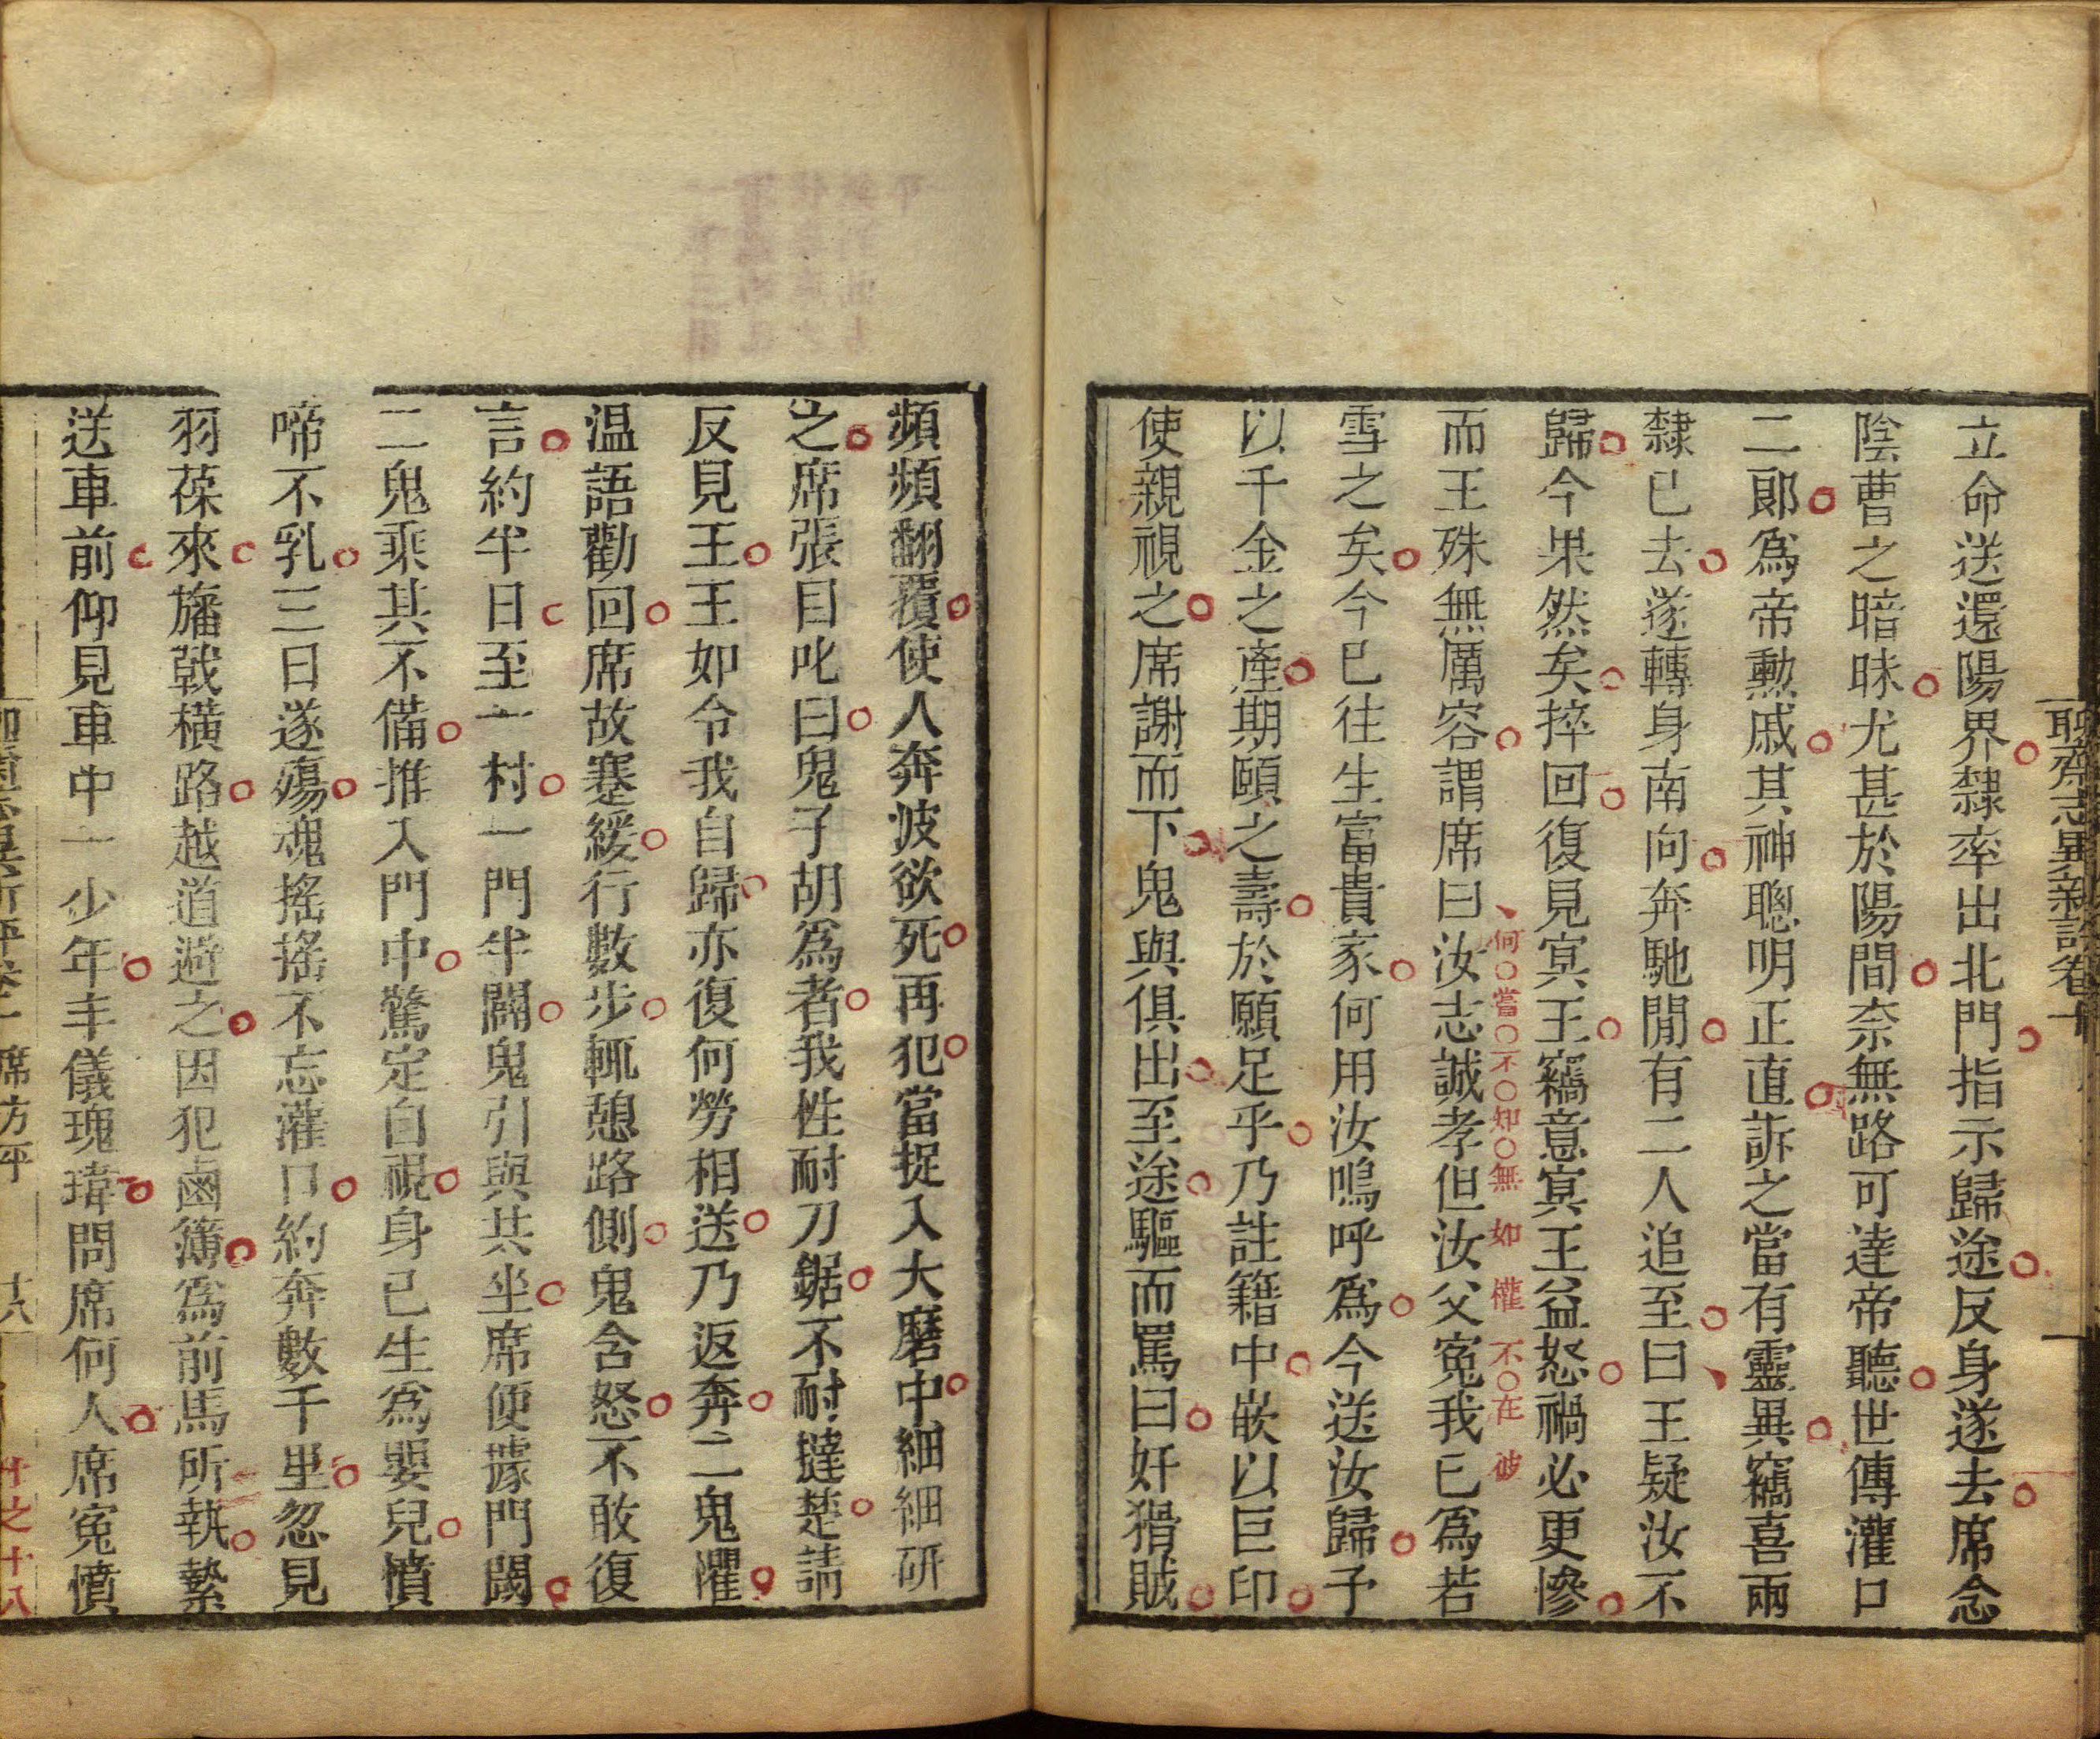 聊齋志異新評卷十
立命送還陽界隸率出北門指示歸途反身遂去席念
陰曹之暗昧尤甚於陽間奈無路可達帝聽世傳灌口
二郞爲帝勲戚其神聰明正直訴之當有靈異竊喜兩
隸已去遂轉身南向奔馳閒有二人追至曰王疑汝不
歸今果然矣捽回復見冥王竊意冥王益怒禍必更慘
而王殊無厲容謂席曰汝志誠孝但汝父寃我已爲若
何嘗不知無如權不在彼
雪之矣今已往生富貴家何用汝鳴呼爲今送汝歸予
以千金之產期頤之壽於願足乎乃註籍中嵌以巨印
使親視之席謝而下鬼與俱出至途驅而罵曰奸猾賊
頻頻翻覆使人奔波欲死再犯當捉入大磨中細細研
之席張目叱曰鬼子胡爲者我性耐刀鋸不耐撻楚請
反見王王如令我自歸亦復何勞相送乃返奔二鬼懼
温語勸回席故蹇緩行數步輒憩路側鬼含怒不敢復
言約半日至一村一門半闢鬼引與共坐席便據門閾
二鬼乘其不備推入門中驚定自視身已生爲嬰兒憤
啼不乳三日遂殤魂搖搖不忘灌口約奔數千里忽見
羽葆來旛戟橫路越道避之因犯鹵簿爲前馬所執縶
送車前仰見車中一少年丰儀瑰瑋問席何人席寃憤
席方平 十八
廿之十八